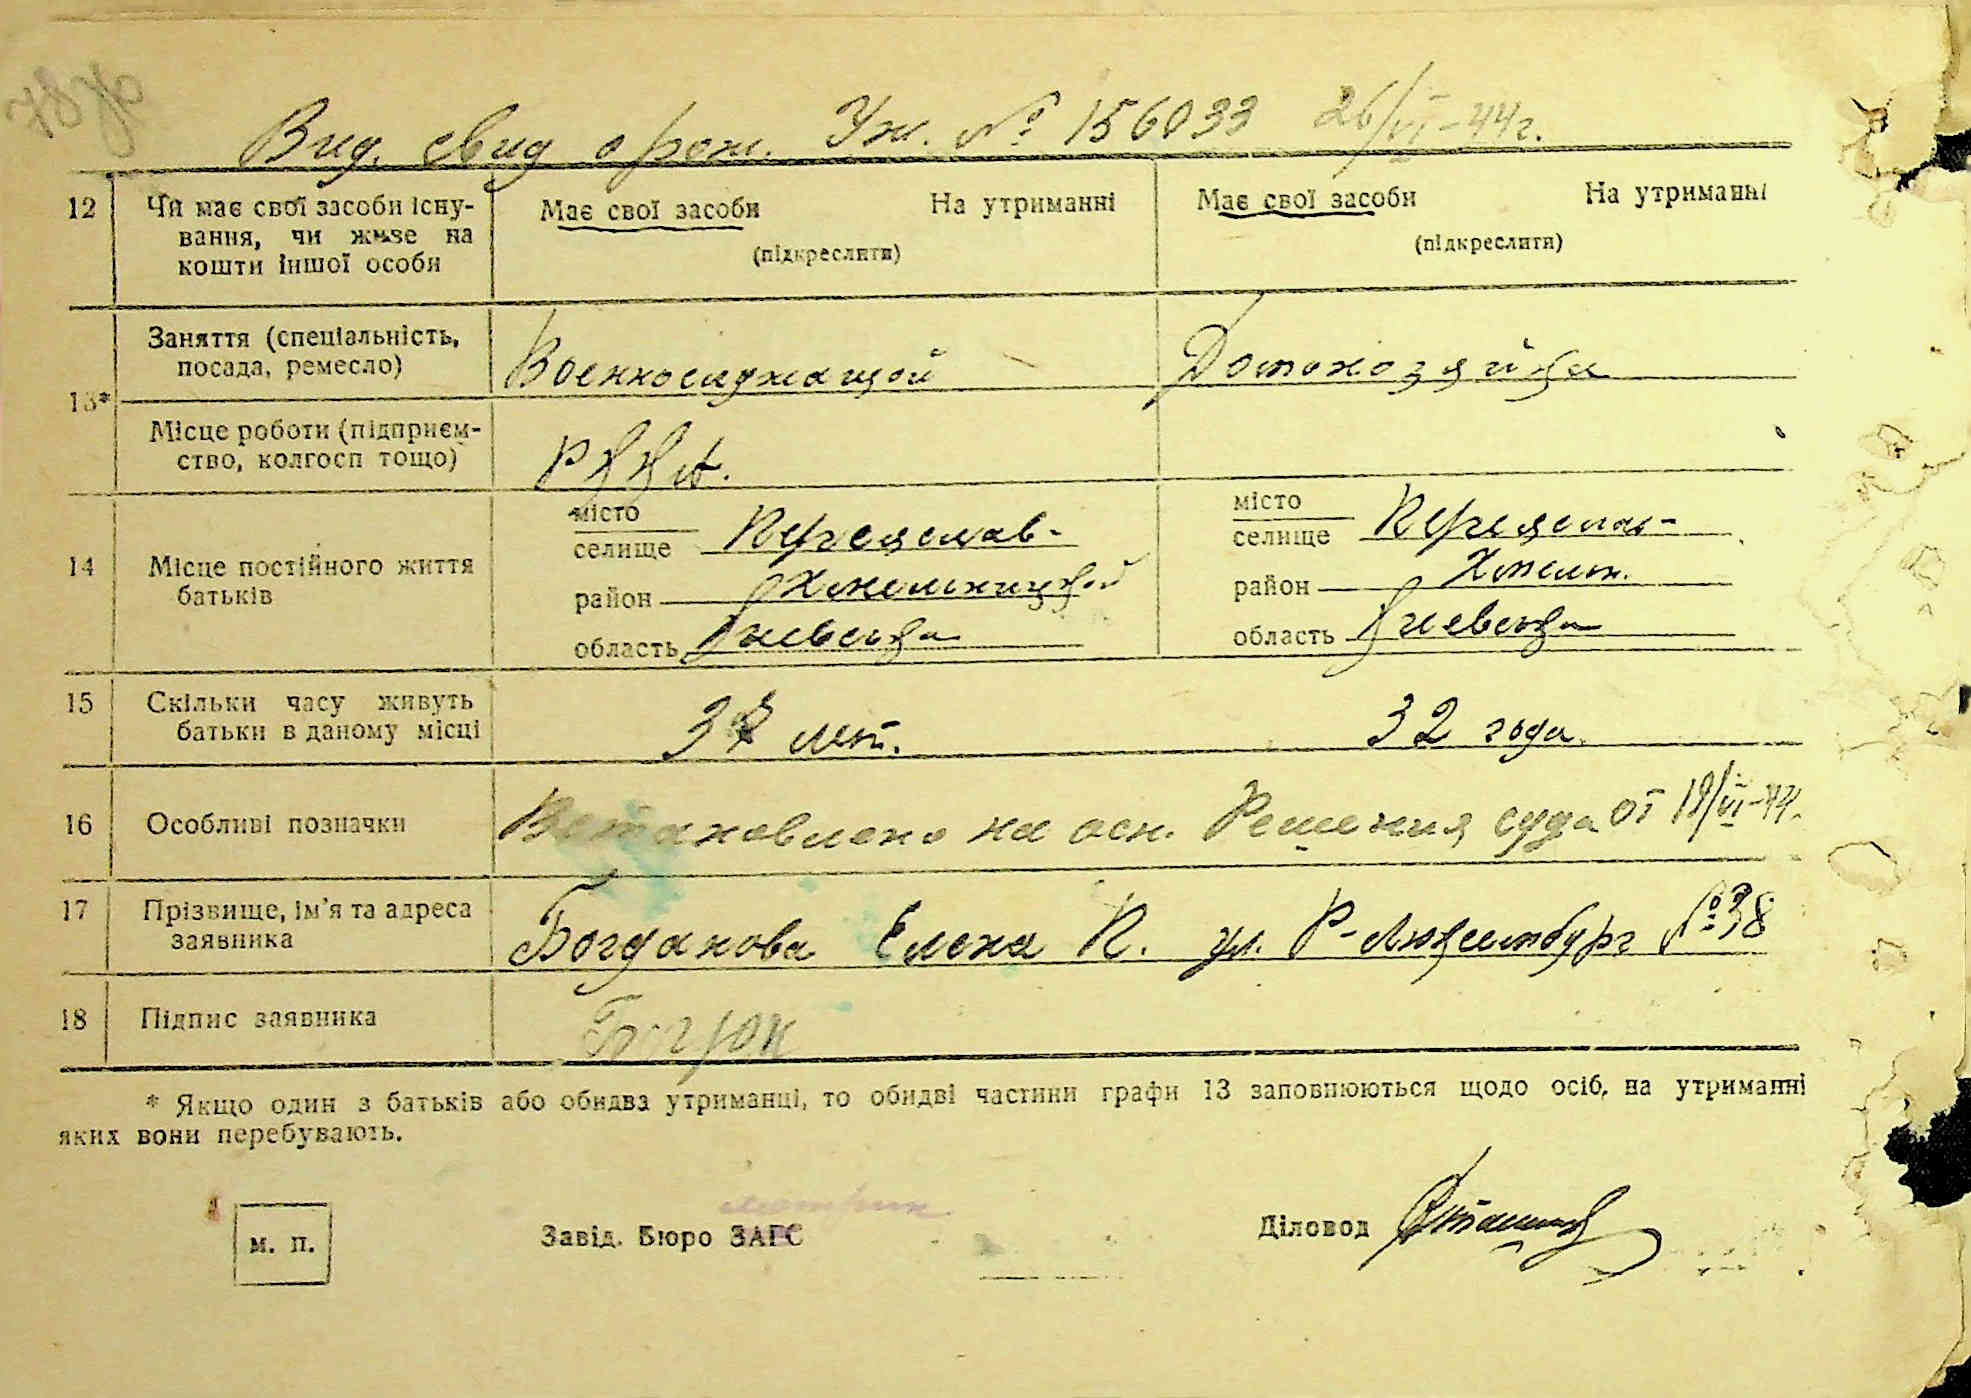 Вид. свид о рож. Ук. № 156033 26/VI-44г.
12 Чи має свої засоби існу-
вання, чи живе на
кошти іншої особи
Має свої засоби На утриманні
(підкреслити)
Має свої засоби На утриманні
(підкреслити)
13*
Заняття (спеціальність,
посада, ремесло)
Военнослужащой
Домохозяйка
Місце роботи (підприєм-
ство, колгосп тощо)
РККА.
14 Місце постійного життя
батьків
місто
селище Переяслав-
район Хмельницкой
область Киевская
місто
селище Переяслав-
район Хмельн.
область Киевская
15 Скільки часу живуть
батьки в даному місці
37 лет.
32 года.
16 Особливі позначки
Встановлено на осн. Решения суда от 19/VI-44.
17 Прізвище, ім'я та адреса
заявника
Богданова Елена П. ул. Р-Люксембург № 38
18 Підпис заявника
* Якщо один з батьків або обидва утриманці, то обидві частини графи 13 заповнюються щодо осіб, на утриманні
яких вони перебувають.
М. П.
Завід. Бюро ЗАГС
Діловод